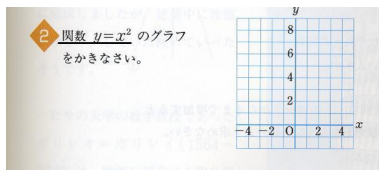 2 関数 y=x² のグラフ
をかきなさい。
y
8
6
4
2
-4 -2 O 2 4 x